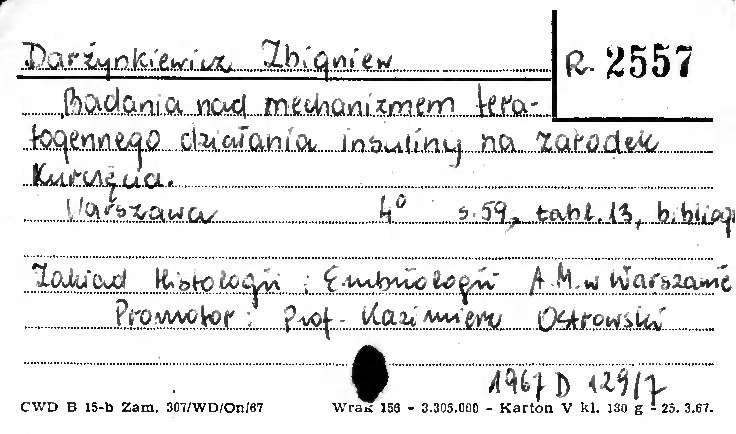 Darżynkiewicz Zbigniew
R. 2557
Badania nad mechanizmem tera-
togennego działania insuliny na zarodek
Kurczęcia.
Warszawa 4° s.59, tabl.13, bibliogr
Zakład Histologii i Embriologii A.M. w Warszawie
Promotor: Prof. Kazimierz Ostrowski
1967 D 129/7
CWD B 15-b Zam. 307/WD/On/67 Wrak 156 - 3.305.000 - Karton V kl. 130 g - 25. 3.67.